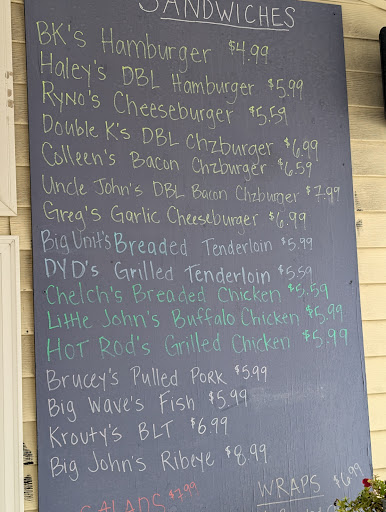 SANDWICHES
BK's Hamburger $4.99
Haley's DBL Hamburger $5.99
Ryno's Cheeseburger $5.59
Double K's DBL Chzburger $6.99
Colleen's Bacon Chzburger $6.59
Uncle John's DBL Bacon Chzburger $7.99
Greg's Garlic Cheeseburger $6.99
Big Unit's Breaded Tenderloin $5.99
DYD's Grilled Tenderloin $5.59
Chelch's Breaded Chicken $5.59
Little John's Buffalo Chicken $5.99
Hot Rod's Grilled Chicken $5.99
Brucey's Pulled Pork $5.99
Big Wave's Fish $5.99
Krouty's BLT $6.99
Big John's Ribeye $8.99
WRAPS $6.99
SALADS $7.99